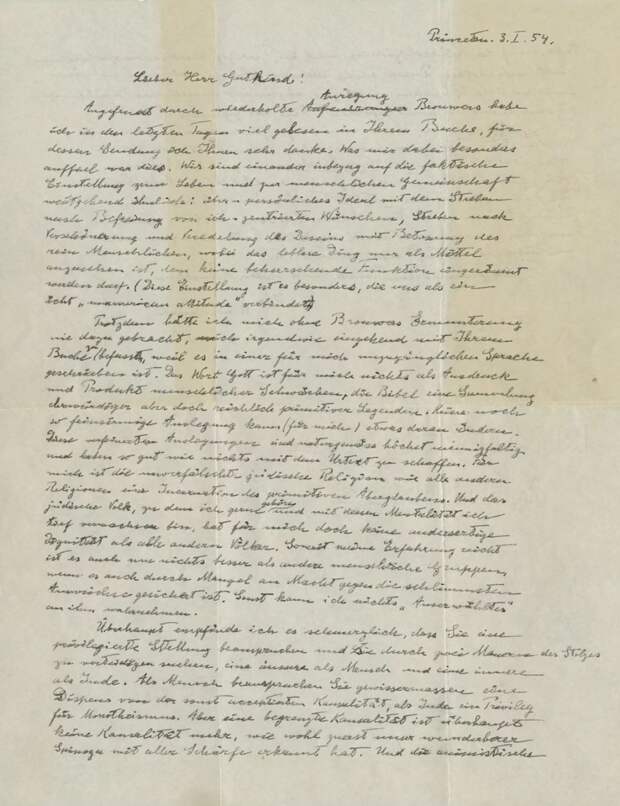 Princeton. 3. I. 54.
Lieber Herr Gutkind!
Angefeuert durch wiederholte Anregung Brouwers habe
ich in den letzten Tagen viel gelesen in Ihrem Buche, für
dessen Sendung ich Ihnen sehr danke. Was mir dabei besonders
auffiel war dies. Wir sind einander inbezug auf die faktische
Einstellung zum Leben und zur menschlichen Gemeinschaft
weitgehend ähnlich: persönliches Ideal mit dem Streben
nach Befreiung von ich-zentrierten Wünschen, Streben nach
Verschönerung und Veredelung des Daseins mit Betonung des
rein Menschlichen, wobei das leblose Ding nur als Mittel
anzusehen ist, dem keine beherrschende Funktion eingeräumt
werden darf. (Diese Einstellung ist es besonders, die uns als ein
echt „unamerican attitude" verbindet)
Trotzdem hätte ich mich ohne Brouwers Ermunterung
nie dazu gebracht, mich irgendwie eingehend mit Ihrem
Buche zu befassen, weil es in einer für mich unzugänglichen Sprache
geschrieben ist. Das Wort Gott ist für mich nichts als Ausdruck
und Produkt menschlicher Schwächen, die Bibel eine Sammlung
ehrwürdiger aber doch reichlich primitiver Legenden. Keine noch
so feinsinnige Auslegung kann (für mich) etwas daran ändern.
Diese verfeinerten Auslegungen sind naturgemäss höchst mannigfaltig
und haben so gut wie nichts mit dem Urtext zu schaffen. Für
mich ist die unverfälschte jüdische Religion wie alle anderen
Religionen eine Incarnation des primitiven Aberglaubens. Und das
jüdische Volk, zu dem ich gerne gehöre und mit dessen Mentalität ich
tief verwachsen bin, hat für mich doch keine andersartige
Dignität als alle anderen Völker. Soweit meine Erfahrung reicht
ist es auch um nichts besser als andere menschliche Gruppen,
wenn es auch durch Mangel an Macht gegen die schlimmsten
Auswüchse gesichert ist. Sonst kann ich nichts „Auserwähltes"
an ihm wahrnehmen.
Überhaupt empfinde ich es schmerzlich, dass Sie eine
privilegierte Stellung beanspruchen und sie durch zwei Mauern des Stolzes
zu verteidigen suchen, eine äussere als Mensch und eine innere
als Jude. Als Mensch beanspruchen Sie gewissermassen eine
Dispens von der sonst acceptierten Kausalität, als Jude ein Privileg
für Monotheismus. Aber eine begrenzte Kausalität ist überhaupt
keine Kausalität mehr, wie wohl zuerst unser wunderbarer
Spinoza mit aller Schärfe erkannt hat. Und die animistische